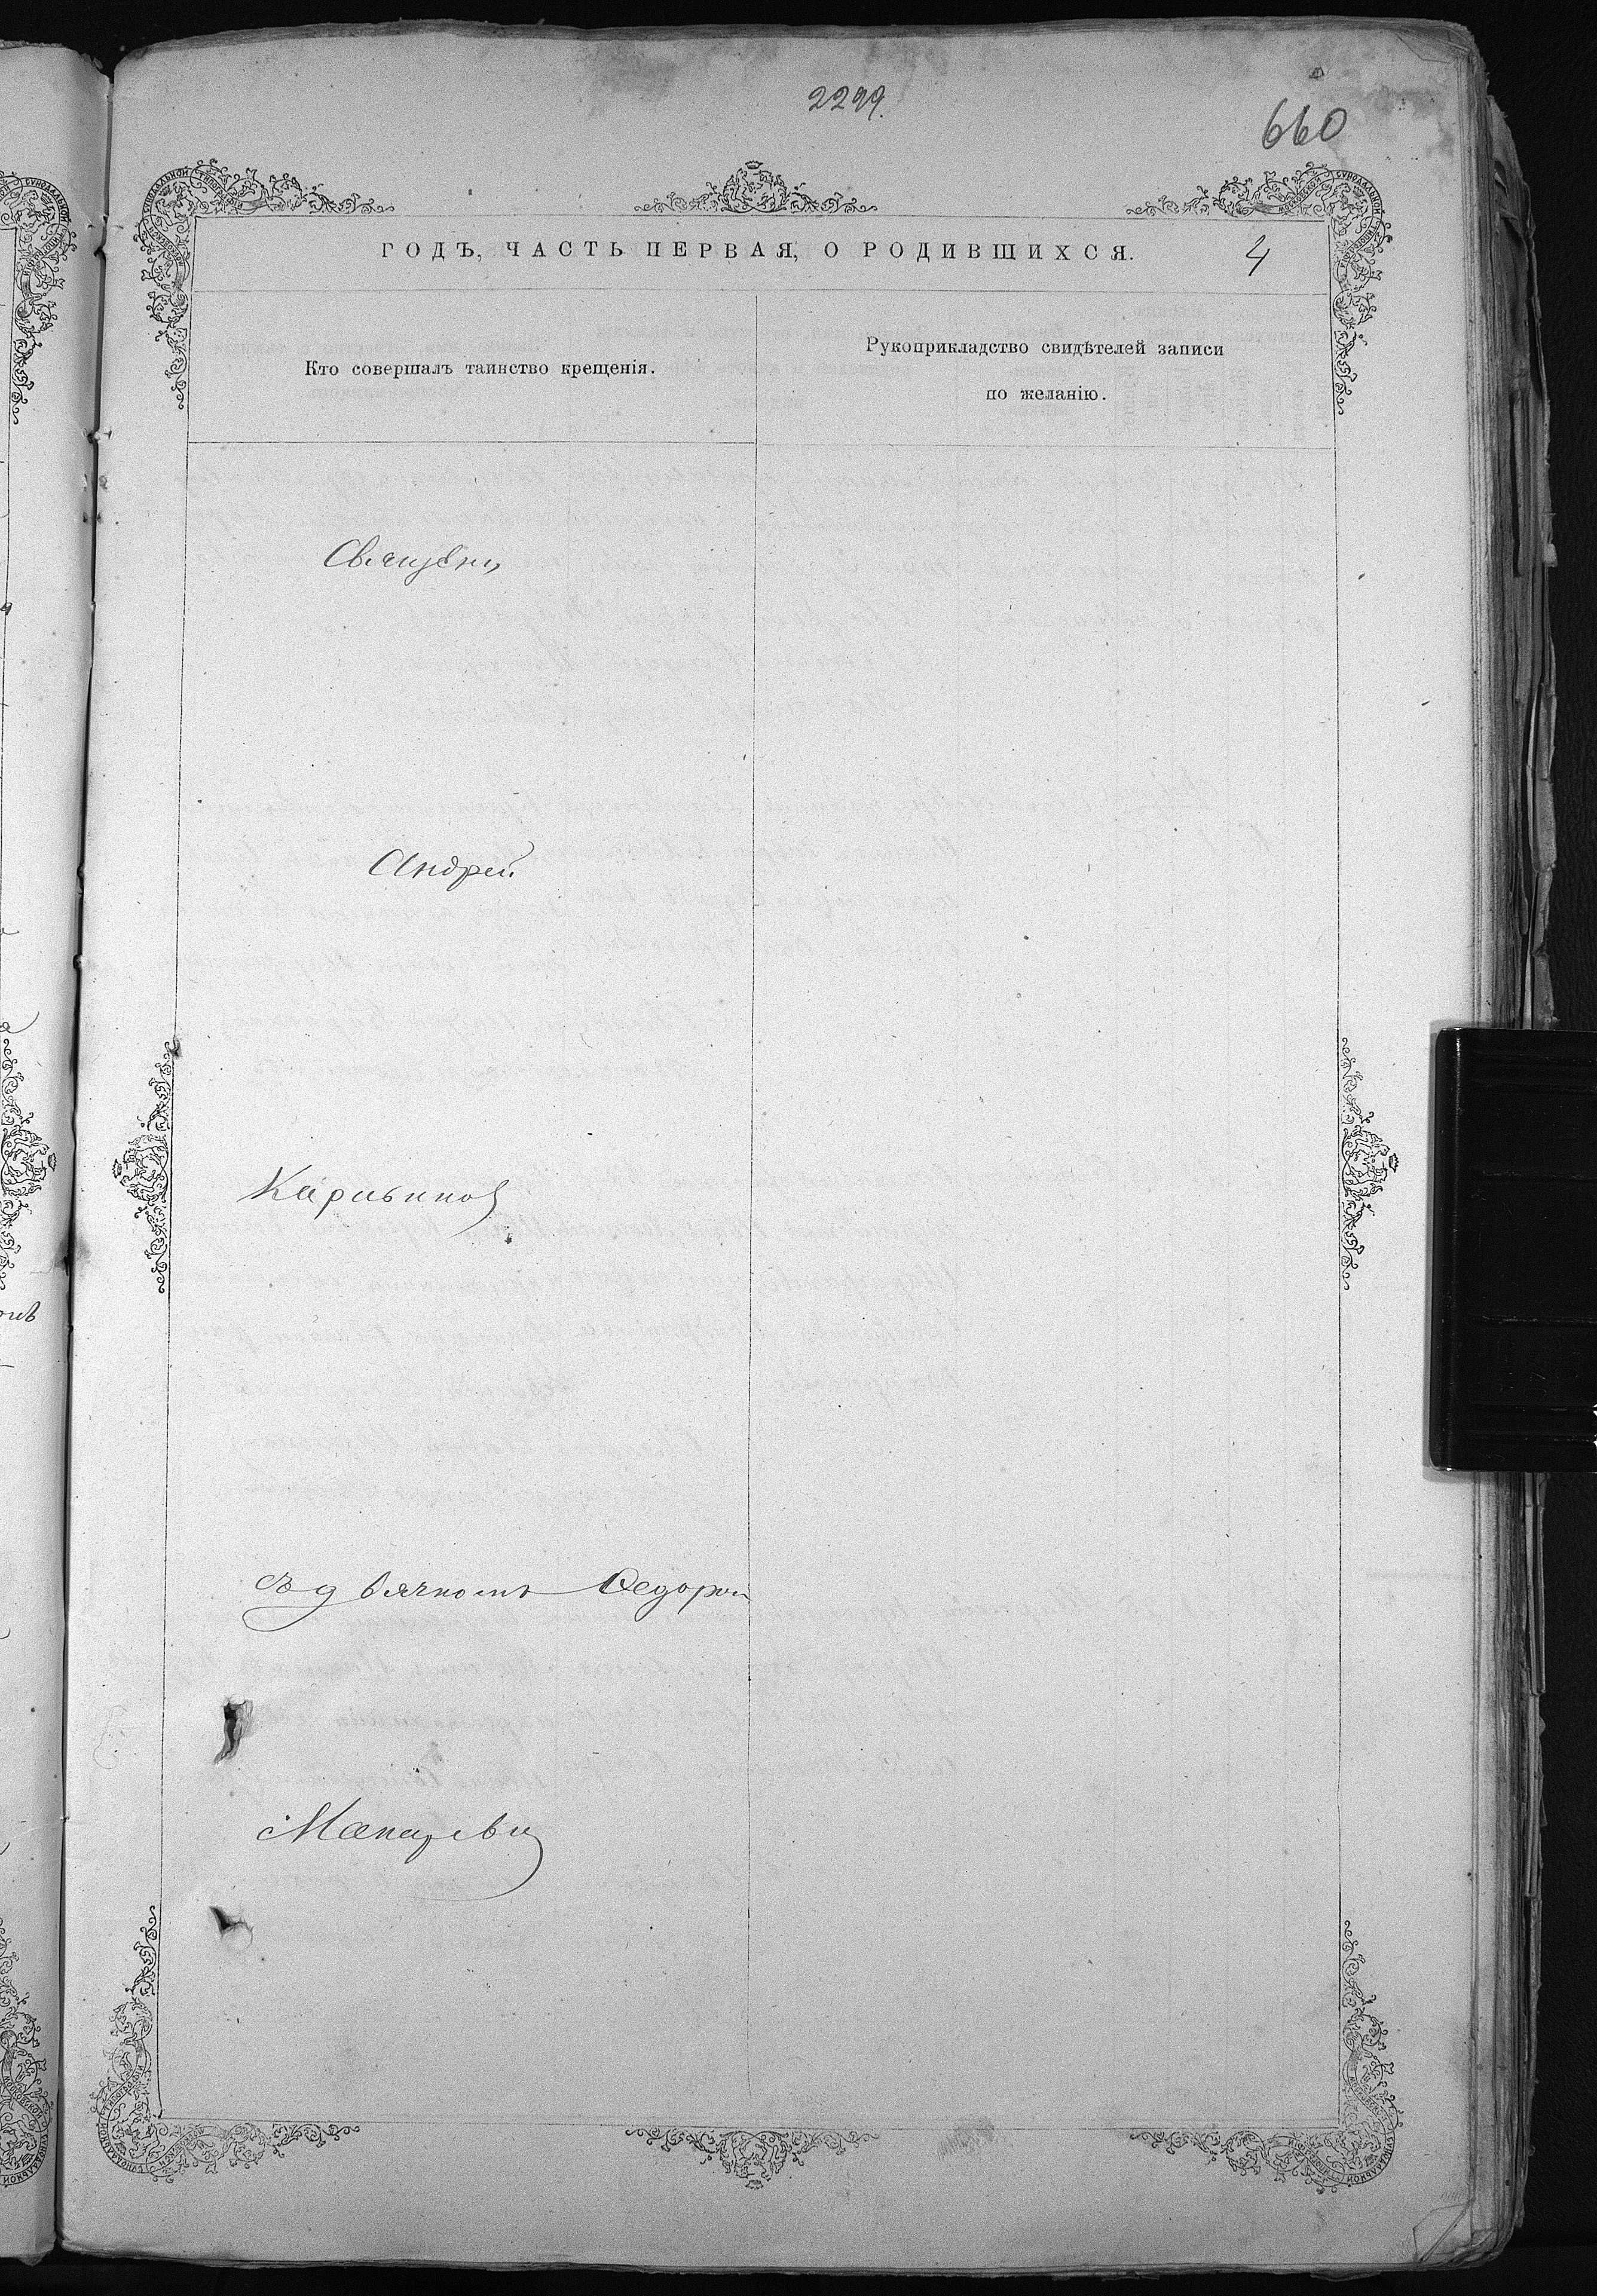 2299.
660
ГОДЪ, ЧАСТЬ ПЕРВАЯ, О РОДИВШИХСЯ.
4
Кто совершалъ таинство крещенія.
Рукоприкладство свидѣтелей записи
по желанію.
Священ
Андрей
съ дьячкомъ Ѳедором